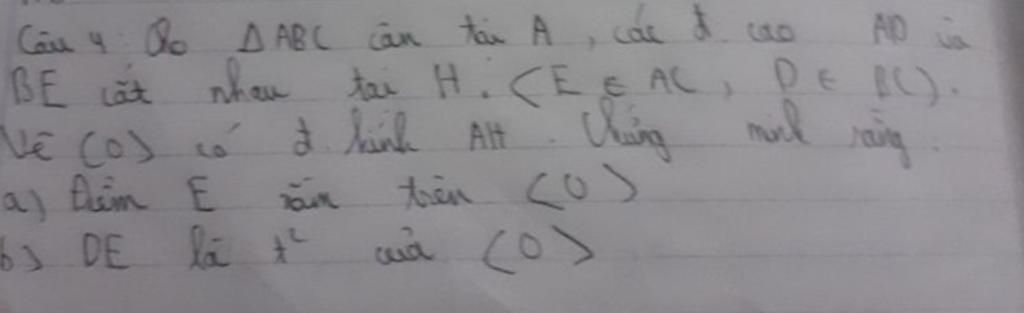 Câu 4: Cho ΔABC cân tại A, các đ cao AD và
BE cắt nhau tại H. (E ∈ AC, D ∈ BC).
Vẽ (O) có đ. kính AH. Chứng minh rằng.
a) Điểm E nằm trên (O)
b) DE là t² của (O)